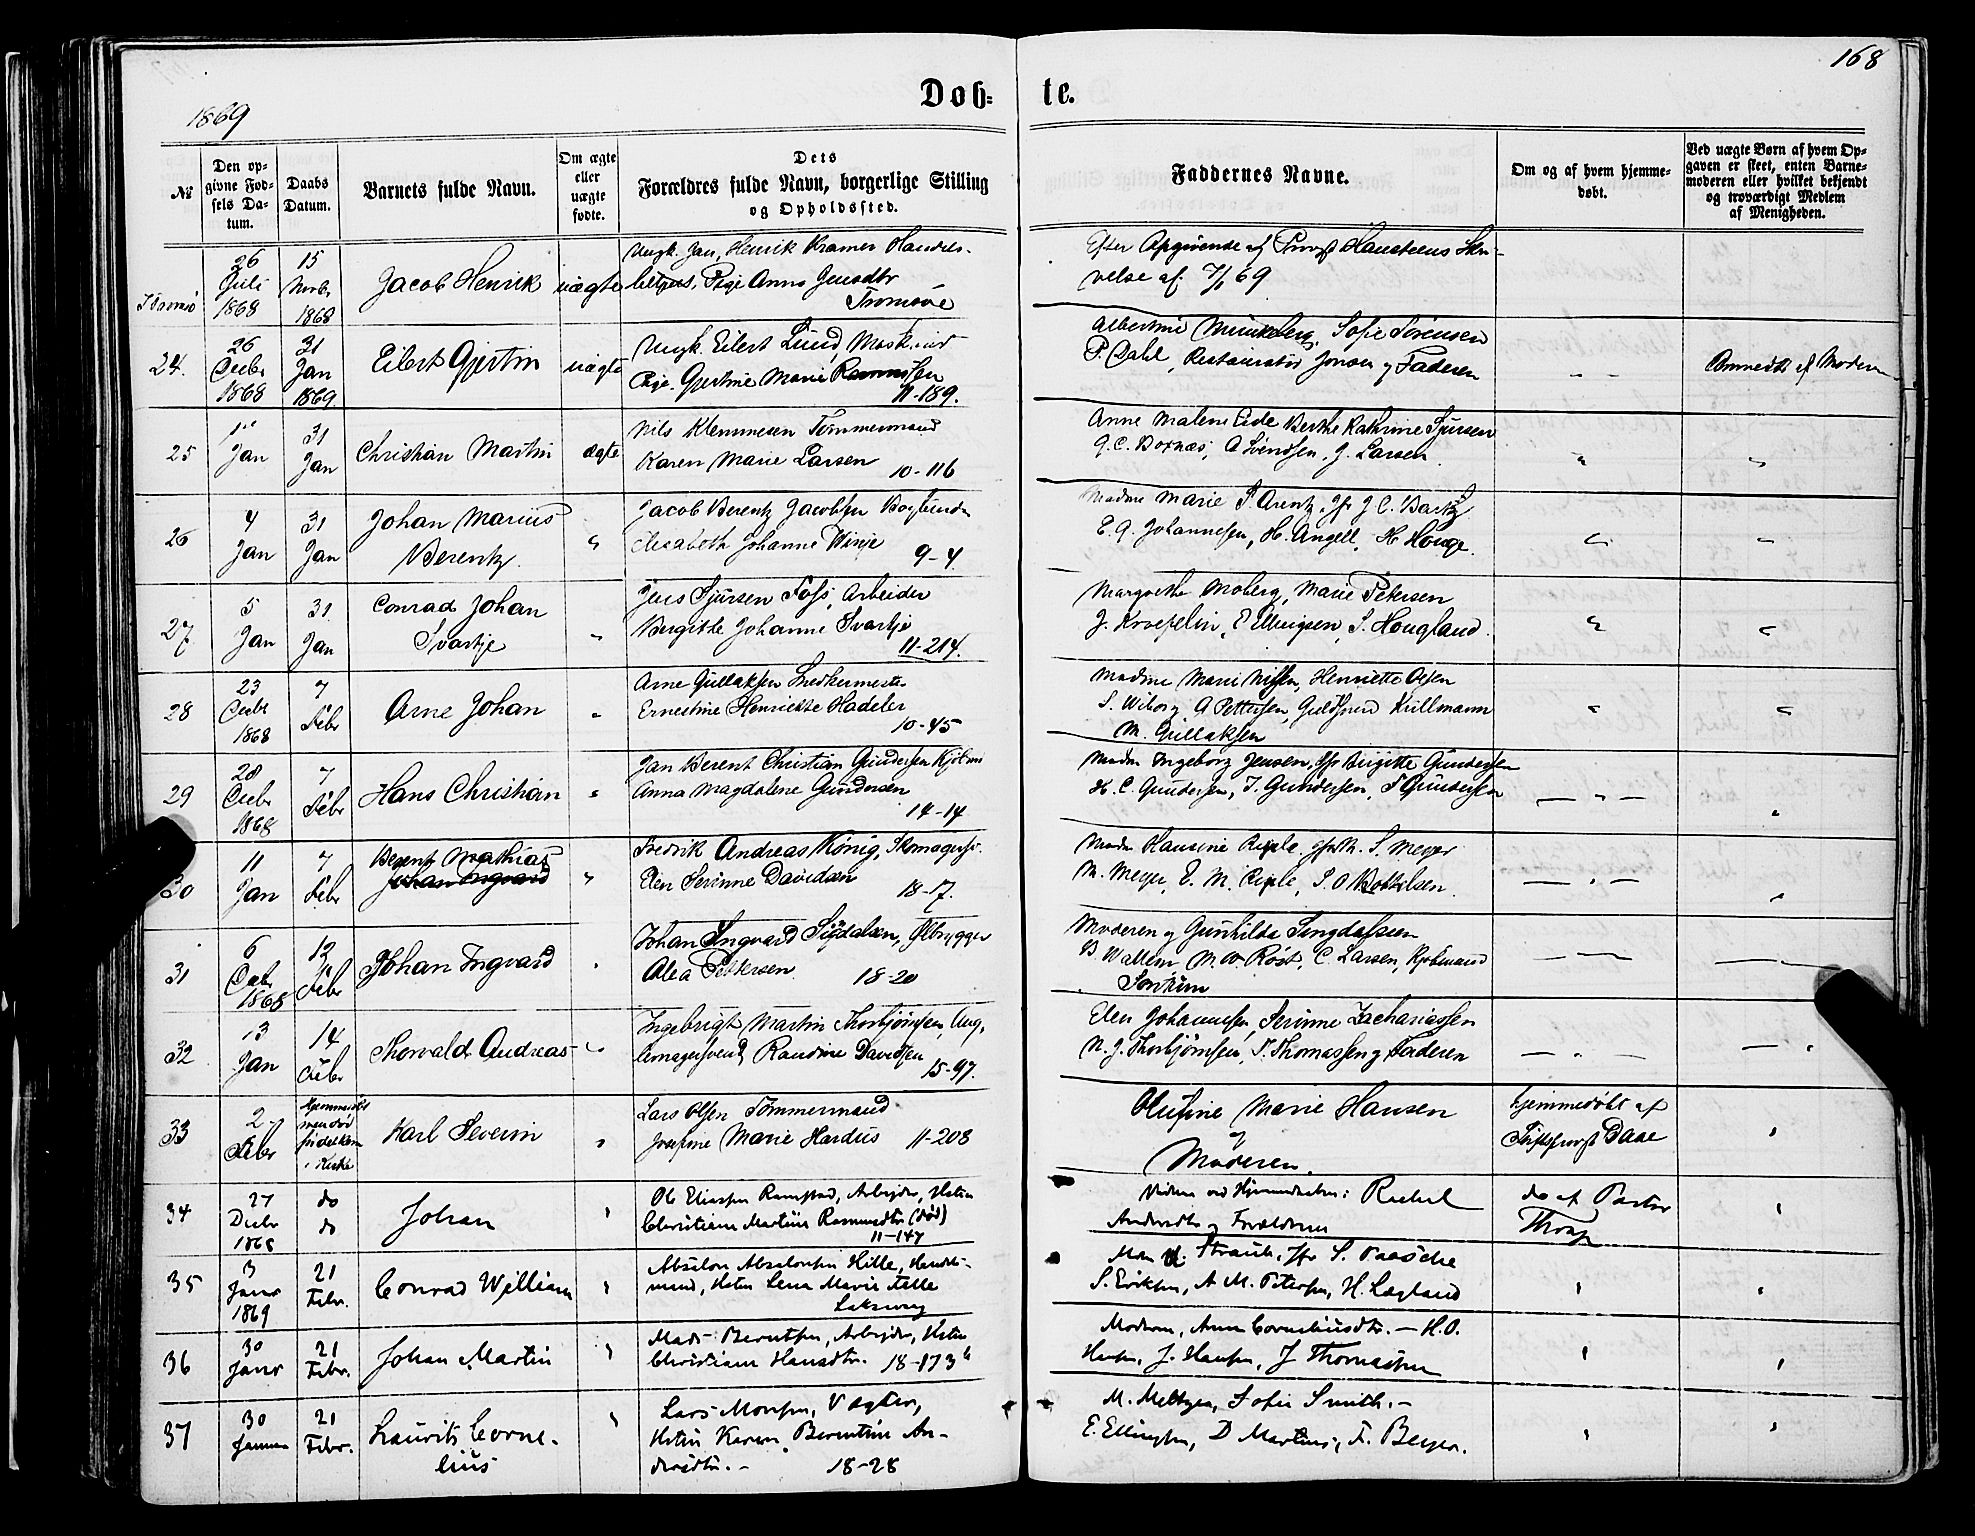 168
1869
Døb=
te.
№
Den op-
givne Fød-
sels Da-
tum.
Daabs
Datum.
Barnets fulde Navn.
Om ægte
eller
uægte
fødte.
Dets
Forældres fulde Navn, borgerlige Stilling
og Opholdssted.
Faddernes Navne.
Om og af hvem hjemme-
døbt.
Ved uægte Børn af hvem Op-
gaven er skeet, enten Barne-
moderen eller hvilket bekjendt
og troværdigt Medlem
af Menigheden.
Tromsø
26 Juli 1868
15 Novb. 1868
Jacob Henrik
uægte
Ungk. Jan Henrik Kramer Handels-
Pige Anna Jensdtr
Tromsøe
Efter Opgivende af Provst Hansteens Skri-
velse af 7/1 69
24.
26 Decbr 1868
31 Jan 1869
Eilert Gjertin
uægte
Ungk. Eilert Lund, Maskinist
Pige. Gjertine Marie
11-189.
Albertine Sofie Sørensen
P. Dahl, Restauratør Jonsen og Faderen
Anmeldt af Moderen
25
Jan
31 Jan
Christian Martin
ægte
Nils Klemmesen Tømmermand
Karen Marie Larsen
10-116
Anne Malene Eide Berthe Kathrine Sjursen
G. C. Boxnæs, A Svendsen, J. Larsen
26
4 Jan
31 Jan
Johan Marius
Berentz.
"
Jacob Berentz Jacobsen Bogbinder
Elisabeth Johanne Winje
9-4
Madme Marie S. Arentz, Jfr J C. Bartz
E. G. Johannesen, H. Angell, H Houge.
27
5 Jan
31 Jan
Conrad Johan
Svartje
"
Jens Sjursen Foss, Arbeider
Bergitte Johanne Svartje
11-214.
Margrethe Moberg, Marie Petersen
J. Kroepelin, E Ellingsen, S. Hougland.
28
23 Decbr 1868
7 Febr
Arne Johan
"
Arne Gullaksen Snedkermester
Ernestine Henriette Hadeler
10-45
Madme Marie Nilsen, Henriette Olsen
S. Wiborg A Pettersen, Guldsmed Kullmann
M. Gullaksen
29
28 Decbr 1868
7 Febr
Hans Christian
"
Jan Berent Christian Gundersen Kjøbm
Anna Magdalene Gundersen
14-14
Madm Ingeborg Jensen, Jfr Birgitte Gundersen
H. C. Gundersen, J. Gundersen, S Gundersen
30
11 Jan
7 Febr
Berent Mathias
Johan Ingvard
"
Fredrik Andreas König, Skomagersv.
Elen Serinne Davidsen
18-17.
Madm Hansine Riple, Jfr M. S. Meyer
M. Meyer, E. M. Riple, S. O Bottelsen.
31
6 Decbr 1868
12 Febr
Johan Ingvard
Johan Ingvard Sigdalsen, Ølbrygger
Alea Pettersen
18-20
Moderen og Gunhilda Singdalsen
B. Wallem M. W. Röst, C. Larsen, Kjøbmand
32
13 Jan
14 Febr
Thorvald Andreas
Ingebrigt Martin Thorbjørnsen, Aug.
Randine Davidsen
15-97.
Elen Johannesen, Serinne Zachariassen
N. J. Thorbjørnsen, T. Thomassen og Faderen
33
2 Febr
Hjemmedøbt
men død
før den kom
i Kirke
Karl Severin
"
Lars Olsen Tømmermand
Josefine Marie Hardus 11-208
Olufine Marie Hansen
og
Moderen.
hjemmedøbt af
Stiftsprovst Daae
34
27 Decbr 1868
do
do
Johan
Ole Eliassen Ramstad, Arbejder, Hstru
Christiane Martine Rasmusdtr (død)
11-147
Vidner ved Hjemmedaaben: Rachel
Andersdtr og Forældrene
do af Pastor
Thrap
35
3 Janr 1869
21 Febr.
Conrad William
Absalon Absalonsen Hille, Handels-
mand, Hstru Lena Marie Falle
Laksevaag
Mdm Straub, Jfr S. Paasche
S. Eriksen, A M. Petersen, H. Lægland
36
30 Janr
21 Febr.
Johan Martin
Mads Berntsen, Arbejder, Hstru
Christiane Hansdtr. 18-173b
Moderen, Anne Corneliusdtr. - H.O.
Hansen, J. Hansen, J Thomassen
37
30 Januar
21 Febr.
Laurits Corne-
lius
Lars Monsen, Vægter,
Hstru Karen Berentine An-
dersdtr.-
18-28
M. Meltzer, Sofie Smith. -
E. Ellingsen, D Martens, F. Beyer.